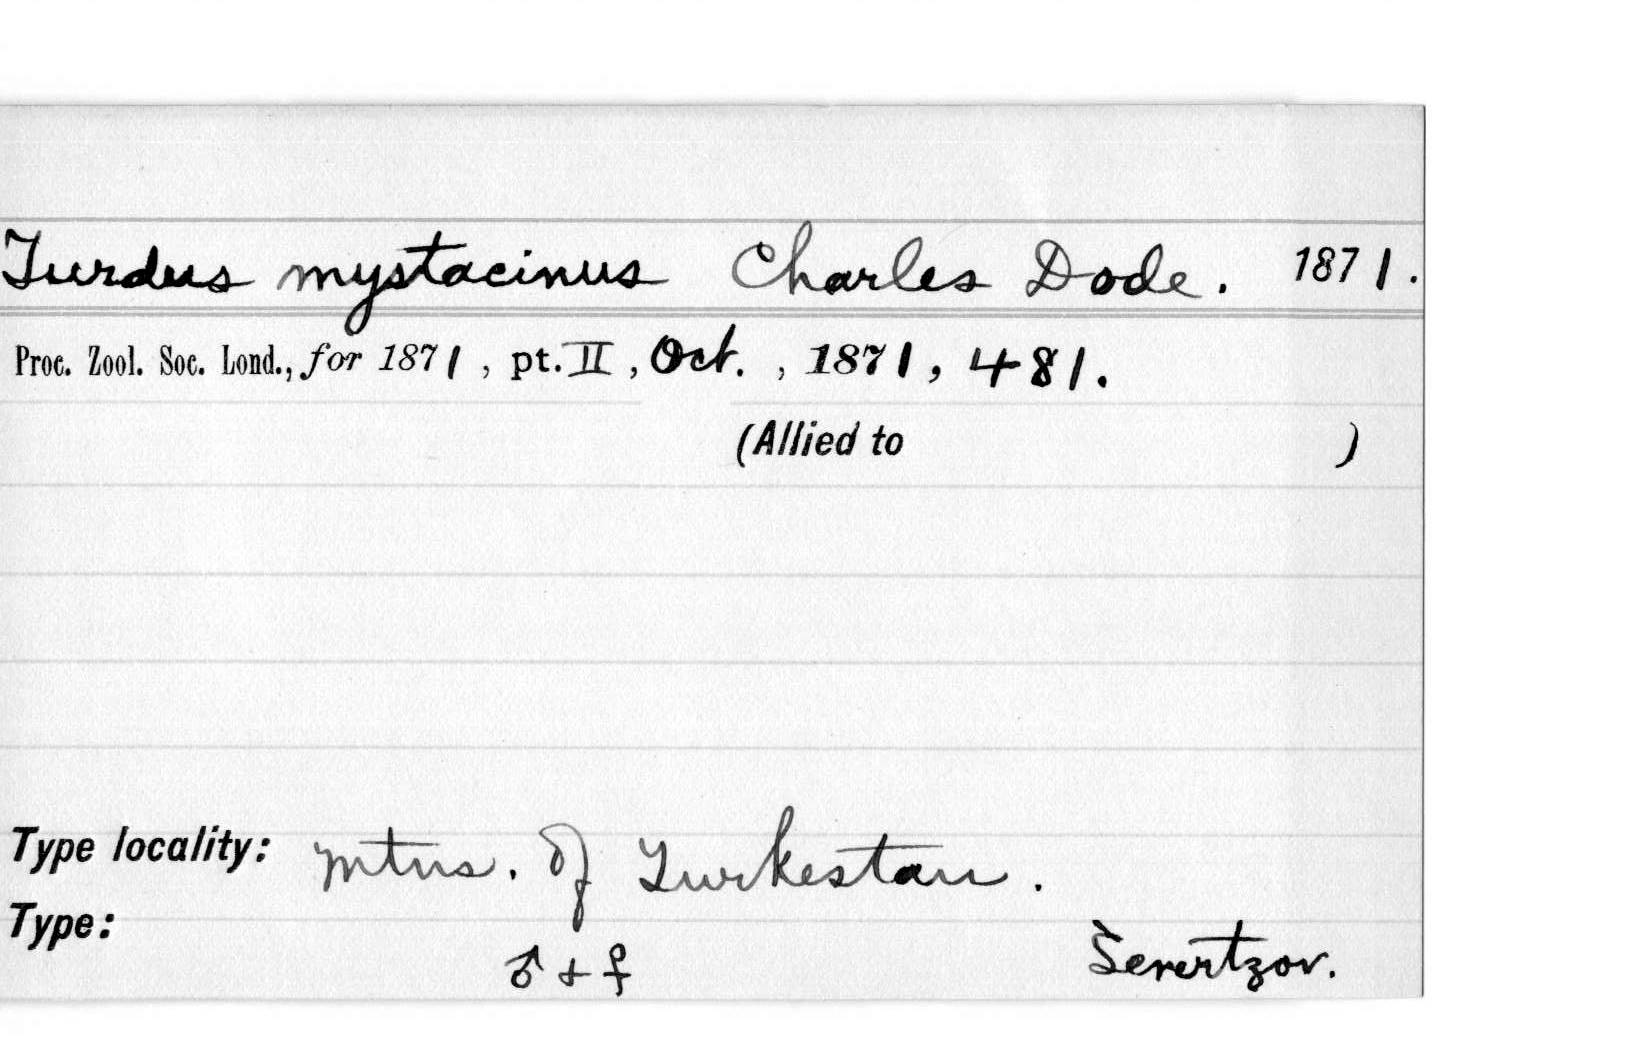 Turdus mystacinus Charles Dode. 1871.
Proc. Zool. Soc. Lond., for 1871, pt. II, Oct., 1871, 481.
(Allied to )
Type locality: Mtns. of Turkestan.
Type:
♂ + ♀ Severtzov.